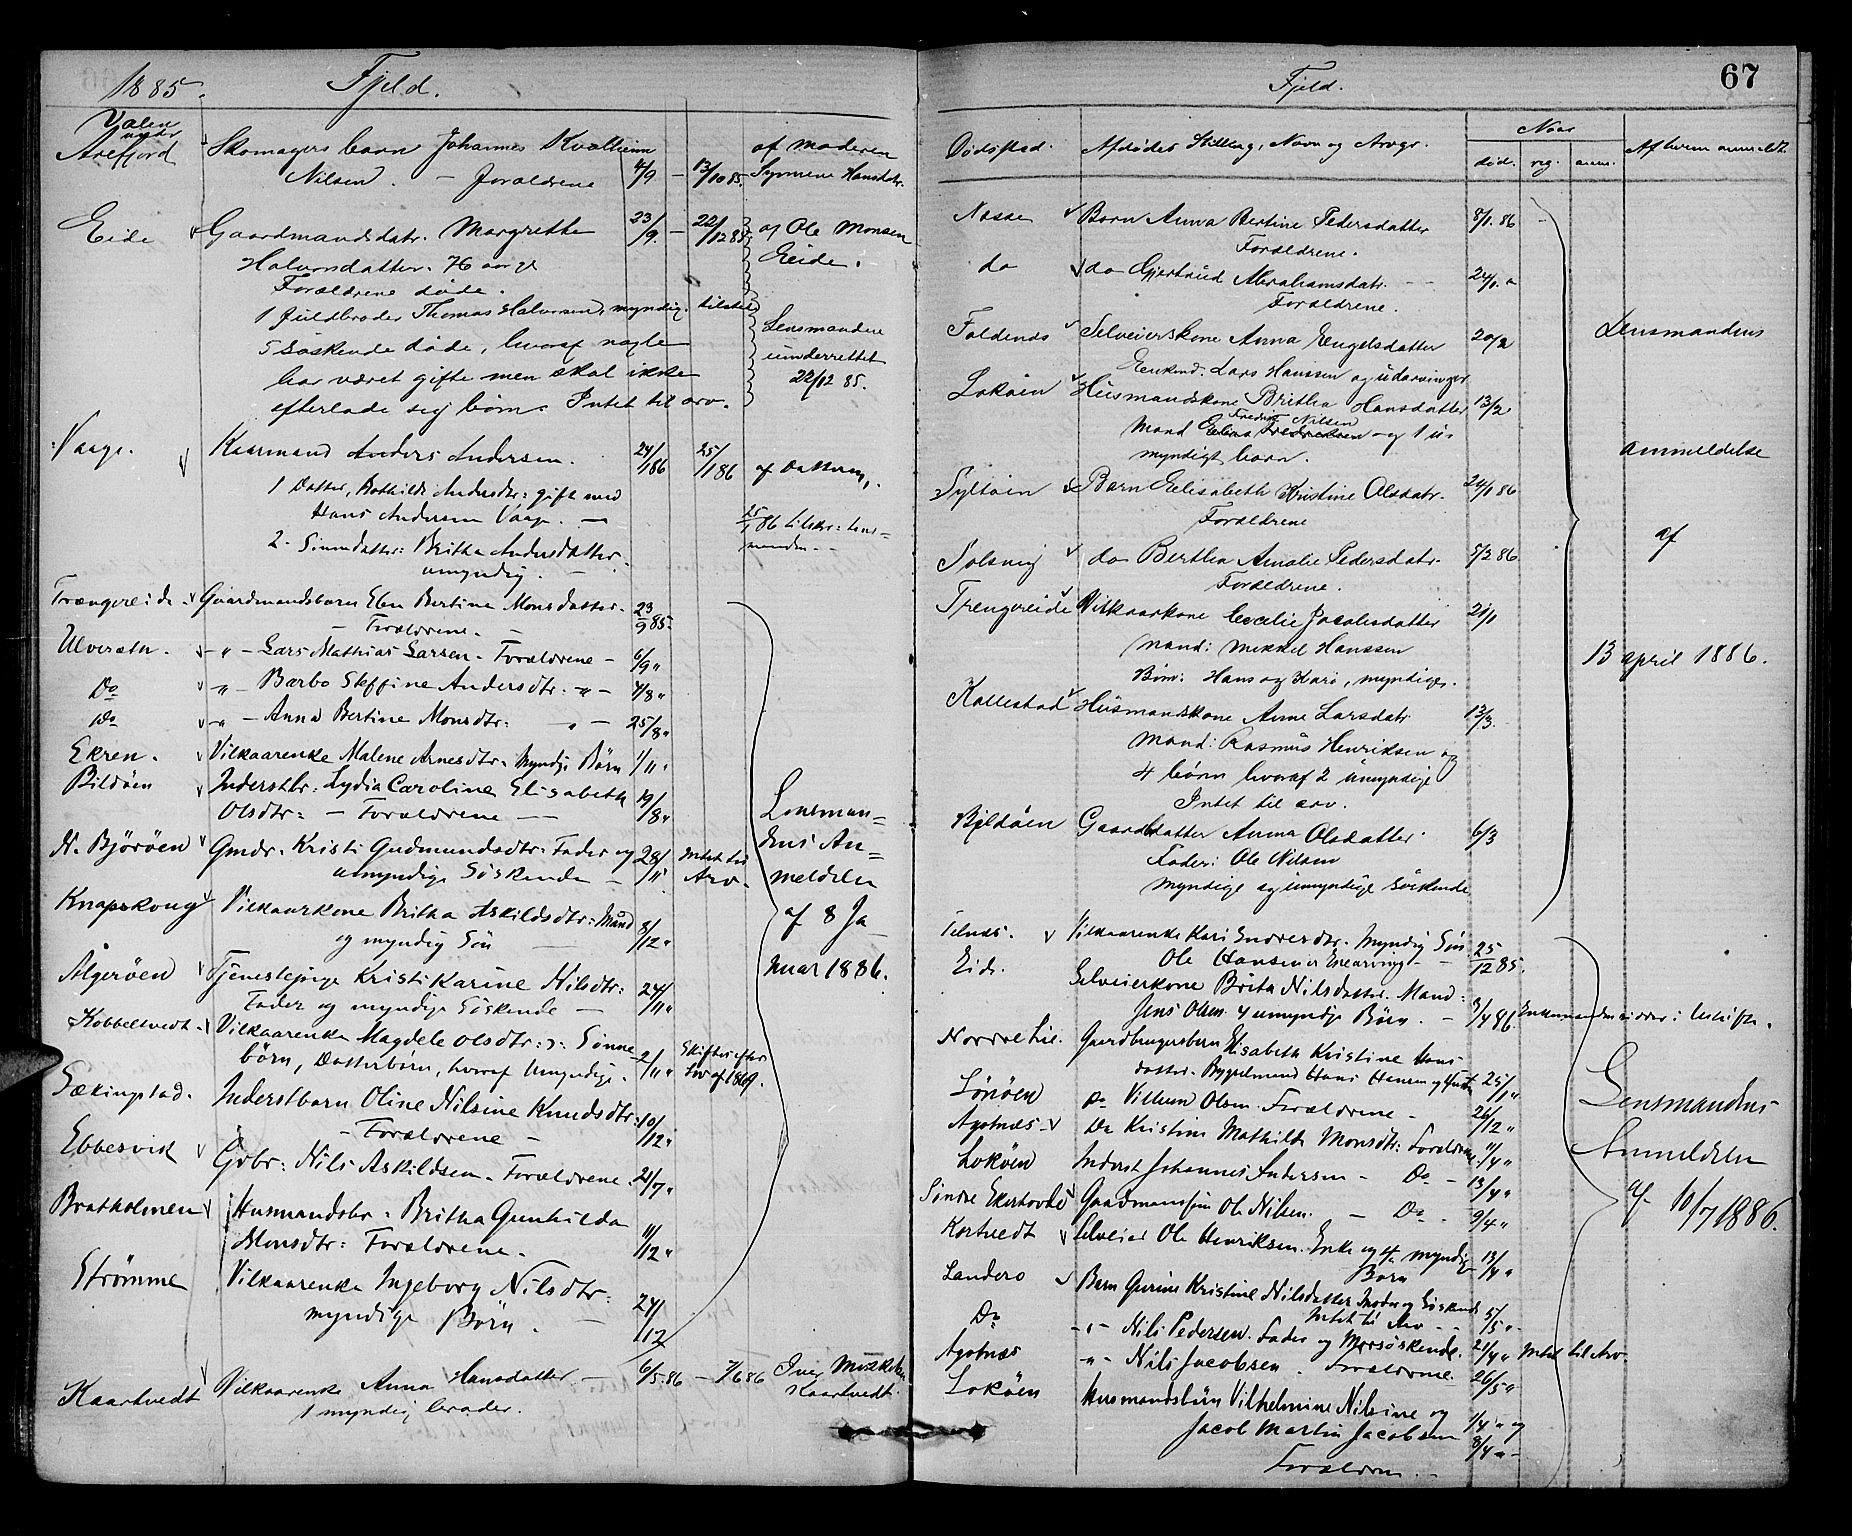 1885. Fjeld.
Valen
under
Arefjord Skomagers barn Johannes Kvalheim af moderen
Nilsen. - Forældrene 4/9 - 13/10 85. Hansdtr.
Eide Gaardmandsdatr. Margrethe 23/9. - 22/12 85. af Ole Monsen
Halvorsdatter. 76 aar gl Eide.
Forældrene døde.
1 fuldbroder Thomas Halvorsen, myndig. tilsted
5 søskende døde, hvoraf nogle Lensmanden
har været gifte men skal ikke underrettet
efterlade sig børn. Intet til arv. 22/12 85.
Vaage. Kaarmand Anders Andersen. 24/1 86 25/1 86 af Datteren,
1 Datter, Bothilde Andersdtr: gift med
Hans Andersen Vaage. -
2. Sønnedatter: Britha Andersdatter
umyndig. -
25/1 86 tilskr: Lens-
manden. -
Trængereide. Gaardmandsbarn Elen Bertine Monsdatter. 23/9 85.
- Forældrene. -
Ulveseth. - " - Lars Mathias Larsen. Forældrene - 6/9 "
Do - " - Barbo Steffine Andersdtr: - " - 4/8 "
Do - " - Anna Bertine Monsdtr: " - 25/8 "
Ekren. Vilkaarenke Malene Arnesdtr. Myndige Børn 1/11.
Bildøen Inderstbr: Lydia Caroline Elisabeth
Olsdtr: - Forældrene - 19/8 "
N. Bjørøen Gmdr. Kristi Gudmundsdtr: Fader og 28/11 " Intet til
umyndige Søskende - Arv.
Lensman=
dens An=
meldelse
af 8 Ja
nuar 1886.
Knapskoug Vilkaarkone Britha Askildsdtr: Mand 8/12 "
og myndig Søn -
Algerøen Tjenestepige Kristi Karine Nilsdtr: 24/11 "
Fader og myndige Søskende -
Kobbeltvedt. Vilkaarenke Magdele Olsdtr: ɔ: Sønne
børn, Datterbørn, hvoraf Umyndige. 2/11 " Skiftes efter
Lov af 1869.
Sækingstad. Inderstbarn Oline Nilsine Knudsdtr: 10/12 "
- Forældrene -
Ebbesvik Gdbr: Nils Askildsen. Forældrene. 21/7 "
Bratholmen Husmandsbr. Britha Gunhilda
Monsdtr: Forældrene. - 11/12 "
Strømme Vilkaarenke Ingeborg Nilsdtr: 24/12
myndige Børn. -
Kaartvedt Vilkaarenke Anna Hansdatter - 6/5 86 - 7/6 86
1 myndig broder. Kaartvedt.
67
Fjeld.
Dødsted. Afdødes Stilling, Navn og Arvgr. Naar Af hvem anmeldt.
død. reg. anm.
Næsse Barn Anna Bertine Pedersdatter 8/1. 86
Forældrene.
do do Gjertrud Abrahamsdatr. - - 24/1. "
Forældrene.
Foldenes Selveierskone Anna Engelsdatter 20/2
Enkemd: Lars Hanssen og udarvinger
Lokøen Husmandskone Britha Hansdatter 13/2
Fredrik Nilsen
Mand Elias Fredriksen og 1 u-
myndigt barn.
Syltøen Barn Elisabeth Kristine Olsdatr. 24/1 86
Forældrene
Solsvig do Bertha Amalie Pedersdatr. 5/2 86
Forældrene.
Trengereide Vilkaarkone Cecilie Jacobsdatter 21/1
Mand: Mikkel Hanssen
Børn: Hans og Kari, myndige.
Kallestad Husmandskone Anne Larsdatr 13/3.
Mand: Rasmus Henriksen og
4 børn hvoraf 2 umyndige
Intet til arv.
Bildøen Gaarddatter Anna Olsdatter. 6/3
Fader: Ole Nilsen
myndige og umyndige Søskende
Lensmandens
anmeldelse
af
13 april 1886.
Telnæs. Vilkaarenke Kari Endresdtr. Myndig Søn 25/12 85.
Ole Hansen Enearving - -
Eide. Selveierkone Brita Nilsdatter. Mand:
Jens Olsen. 4 umyndige Børn. - 3/4 86. Enkemanden sidder i Uskifte.
Gaardbrugersbarn Elisabeth Kristine Hans-
datter. Hans Hansen og 25/1 "
Lønøen Do Villum Olsen. Forældrene - 26/12 "
Agotnæs. Do Kristine Mathilde Monsdtr: Forældrene 11/4 "
Lokøen Inderst Johannes Andersen - Do - 13/4 "
Søndre Ekerhovde Gaardmandspn Ole Nilsen. - Do. 9/4 "
Kortvedt Selveier Ole Henriksen. Enke og myndige 13/4 "
Børn
Landero Barn Gurine Kristine Nilsdatter Moder og Søskende
Intet til Arv - - 5/5 "
Do - " - Nils Pedersen. Fader og Morsøskende. 21/4 " Intet til Arv.
Agotnæs - " - Nils Jacobsen - Forældrene. 26/5 "
Lokøen Husmandsbørn Vilhelmine Nilsine og 1/4 " og
Jacob Martin Jacobsen 8/4 " -
Forældrene. -
Lensmandens
Anmeldelse
af 10/7 1886.